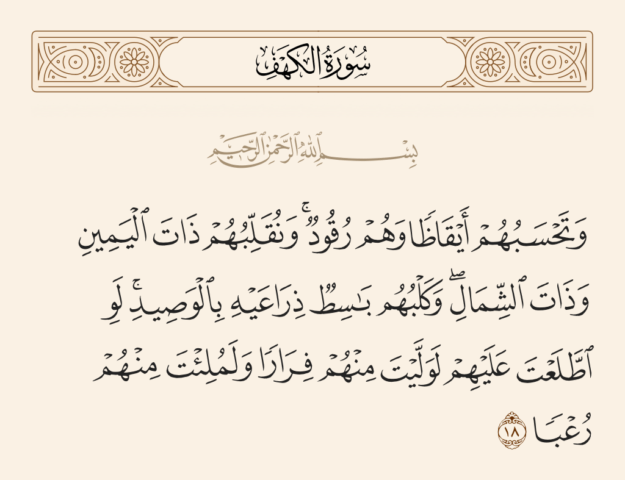 سُورَةُ الكَهْفِ
بِسْمِ ٱللَّهِ ٱلرَّحْمَٰنِ ٱلرَّحِيمِ
وَتَحْسَبُهُمْ أَيْقَاظًا وَهُمْ رُقُودٌ ۚ وَنُقَلِّبُهُمْ ذَاتَ ٱلْيَمِينِ
وَذَاتَ ٱلشِّمَالِ ۖ وَكَلْبُهُم بَٰسِطٌ ذِرَاعَيْهِ بِٱلْوَصِيدِ ۚ لَوِ
ٱطَّلَعْتَ عَلَيْهِمْ لَوَلَّيْتَ مِنْهُمْ فِرَارًا وَلَمُلِئْتَ مِنْهُمْ
رُعْبًا ١٨